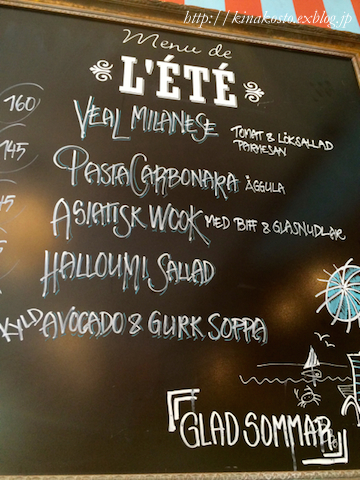 http://kinakosto.exblog.jp
Menu de
L'ÉTÉ
160
VEAL MILANESE TOMAT & LÖKSALLAD
PARMESAN
145
PASTA CARBONARA ÄGGULA
ASIATISK WOOK MED BIFF & GLASNUDLAR
HALLOUMI SALLAD
KYLD AVOCADO & GURK SOPPA
GLAD SOMMAR